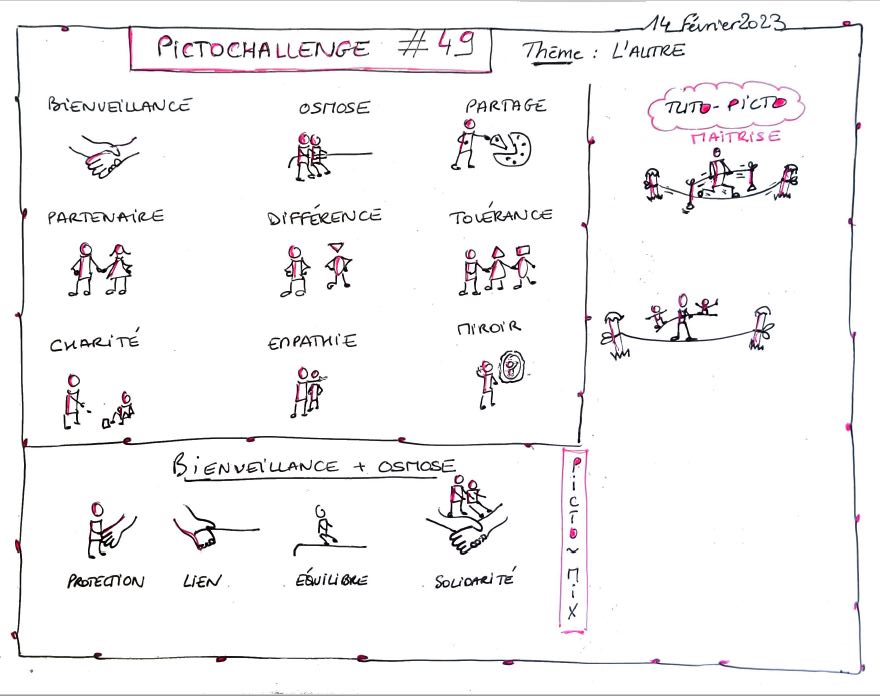 14 Février 2023
PICTOCHALLENGE #49
Thème : L'AUTRE
BIENVEILLANCE
OSMOSE
PARTAGE
PARTENAIRE
DIFFÉRENCE
TOLÉRANCE
CHARITÉ
EMPATHIE
MIROIR
TUTO-PICTO
MAITRISE
BIENVEILLANCE + OSMOSE
PROTECTION
LIEN
ÉQUILIBRE
SOLIDARITÉ
PICTO~MIX